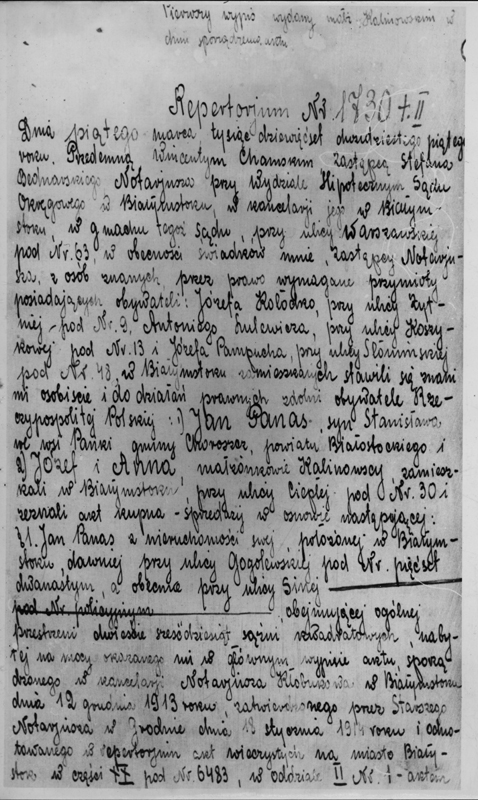 Pierwszy wypis wydany małż. Kalinowskim w
dniu sporządzenia aktu
Repertorjum Nr 1730 + II
Dnia piątego marca tysiąc dziewięćset dwudziestego piątego
roku. Przedemną Wincentym Chamskim zastępcą Stefana
Bednarskiego Notarjusza przy Wydziale Hipotecznym Sądu
Okręgowego w Białymstoku, w kancelarji jego w Białym-
stoku, w gmachu tegoż Sądu, przy ulicy Warszawskiej
pod Nr. 63, w obecności świadków mnie, zastępcy Notarju-
sza, z osób znanych, przez prawo wymagane przymioty
posiadających obywateli: Józefa Kołodko, przy ulicy Żyt-
niej - pod Nr. 9, Antoniego Sulewicza, przy ulicy Koszy-
kowej pod Nr. 13 i Józefa Pampucha, przy ulicy Słonimskiej
pod Nr. 48, w Białymstoku zamieszkałych stawili się znani
mi osobiście i do działań prawnych zdolni obywatele Rze-
czypospolitej Polskiej: 1) Jan Panas syn Stanisława,
we wsi Pańki gminy Choroszcz, powiatu Białostockiego i
2) Józef i Anna, małżonkowie Kalinowscy, zamiesz-
kali w Białymstoku, przy ulicy Ciepłej pod Nr. 30 i
zeznali akt kupna - sprzedaży w osnowie następującej:
§ 1. Jan Panas z nieruchomości swej, położonej w Białym-
stoku, dawniej przy ulicy Gogolewskiej pod Nr. pięćset
dwanastym, a obecnie przy ulicy Sinej
pod Nr policyjnym, obejmującej ogólnej
przestrzeni dwieście sześćdziesiąt sążni kwadratowych, naby-
tej na mocy okazanego mi w głównym wypisie aktu, sporzą-
dzonego w kancelarji Notarjusza Kłabukowa w Białymstoku
dnia 12 grudnia 1913 roku, zatwierdzonego przez Starszego
Notarjusza w Grodnie dnia 18 stycznia 1914 roku i odno-
towanego w repertorjum akt wieczystych na miasto Biały-
stok w części pod Nr. 6483, w oddziale II Nr. 1 - aktem